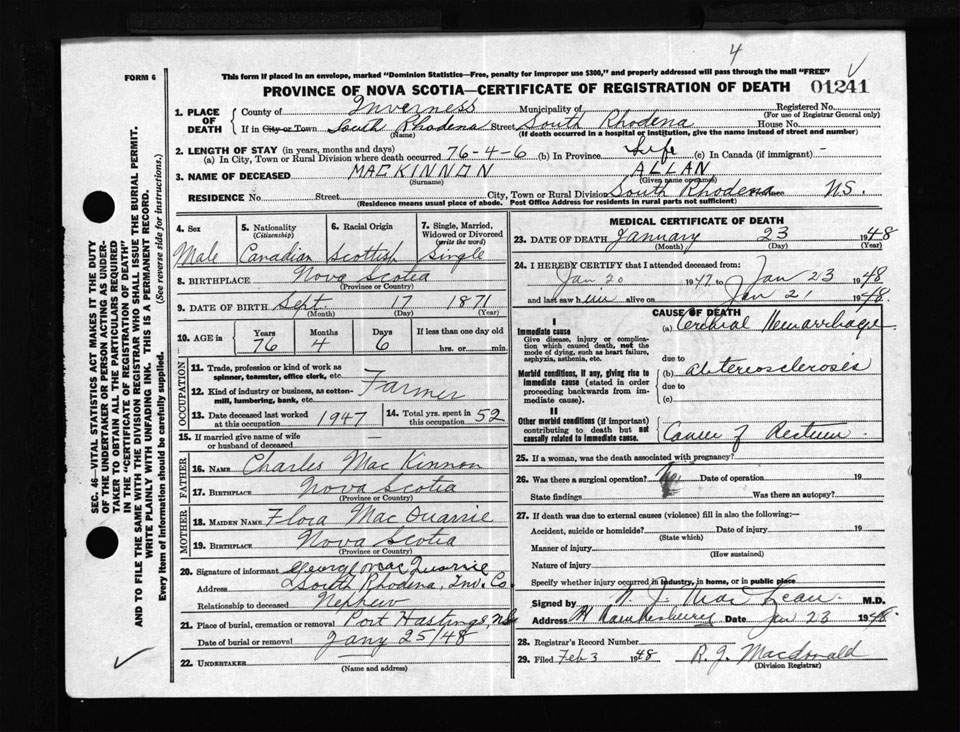 4
FORM 6
This form if placed in an envelope, marked "Dominion Statistics—Free, penalty for improper use $300," and properly addressed will pass through the mail "FREE"
PROVINCE OF NOVA SCOTIA—CERTIFICATE OF REGISTRATION OF DEATH 01241
1. PLACE OF DEATH County of Inverness Municipality of Registered No.
(For use of Registrar General only)
If in City or Town South Rhodena Street South Rhodena House No.
(Name) (If death occurred in a hospital or institution, give the name instead of street and number)
2. LENGTH OF STAY (in years, months and days)
(a) In City, Town or Rural Division where death occurred 76-4-6 (b) In Province Life (c) In Canada (if immigrant) -
3. NAME OF DECEASED MACKINNON ALLAN
(Surname) (Given name or names)
RESIDENCE No. Street City, Town or Rural Division South Rhodena Province NS.
(Residence means usual place of abode. Post Office Address for residents in rural parts not sufficient)
4. Sex Male
5. Nationality (Citizenship) Canadian
6. Racial Origin Scottish
7. Single, Married, Widowed or Divorced (write the word) Single
8. BIRTHPLACE Nova Scotia
(Province or Country)
9. DATE OF BIRTH Sept. 17 1871
(Month) (Day) (Year)
10. AGE in Years 76 Months 4 Days 6 If less than one day old
hrs. or min.
OCCUPATION
11. Trade, profession or kind of work as spinner, teamster, office clerk, etc.
12. Kind of industry or business, as cotton-mill, lumbering, bank, etc. Farmer
13. Date deceased last worked at this occupation 1947
14. Total yrs. spent in this occupation 52
15. If married give name of wife or husband of deceased
FATHER
16. NAME Charles MacKinnon
17. BIRTHPLACE Nova Scotia
(Province or Country)
MOTHER
18. MAIDEN NAME Flora MacQuarrie
19. BIRTHPLACE Nova Scotia
(Province or Country)
20. Signature of informant George MacQuarrie
Address South Rhodena, Inv. Co.
Relationship to deceased Nephew
21. Place of burial, cremation or removal Port Hastings, NS
Date of burial or removal Jany 25/48
22. UNDERTAKER
(Name and address)
MEDICAL CERTIFICATE OF DEATH
23. DATE OF DEATH January 23 1948
(Month) (Day) (Year)
24. I HEREBY CERTIFY that I attended deceased from:
Jan. 20 1947 to Jan 23 1948
and last saw him alive on Jan 21 1948.
CAUSE OF DEATH
I
Immediate cause
Give disease, injury or complication which caused death, not the mode of dying, such as heart failure, asphyxia, asthenia, etc.
(a) Cerebral Hemorrhage
due to
Morbid conditions, if any, giving rise to immediate cause (stated in order proceeding backwards from immediate cause).
(b) Arteriosclerosis
due to
(c)
II
Other morbid conditions (if important) contributing to death but not causally related to immediate cause.
Cancer of Rectum
25. If a woman, was the death associated with pregnancy?
26. Was there a surgical operation? Date of operation 19
State findings Was there an autopsy?
27. If death was due to external causes (violence) fill in also the following:—
Accident, suicide or homicide? Date of injury 19
(State which)
Manner of injury
(How sustained)
Nature of injury
Specify whether injury occurred in industry, in home, or in public place
Signed by J. MacLean M.D.
Address Pt Hawkesbury Date Jan 23 1948.
28. Registrar's Record Number
29. Filed Feb 3 1948 R. J. Macdonald
(Division Registrar)
SEC. 46—VITAL STATISTICS ACT MAKES IT THE DUTY
OF THE UNDERTAKER OR PERSON ACTING AS UNDER-
TAKER TO OBTAIN ALL THE PARTICULARS REQUIRED
IN THE "CERTIFICATE OF REGISTRATION OF DEATH"
AND TO FILE THE SAME WITH THE DIVISION REGISTRAR WHO SHALL ISSUE THE BURIAL PERMIT.
WRITE PLAINLY WITH UNFADING INK. THIS IS A PERMANENT RECORD.
Every item of information should be carefully supplied. (See reverse side for instructions.)